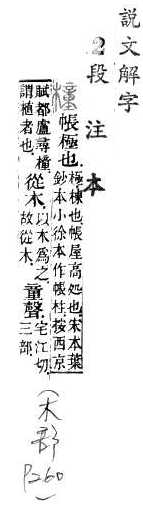 說文解字
段注本
橦帳極也極棟也帳屋高処也宋本葉
鈔本小徐本作帳柱按西京
賦都盧尋橦從木以木爲之童聲宅江切
謂植者也故從木三部
(木部
P260)